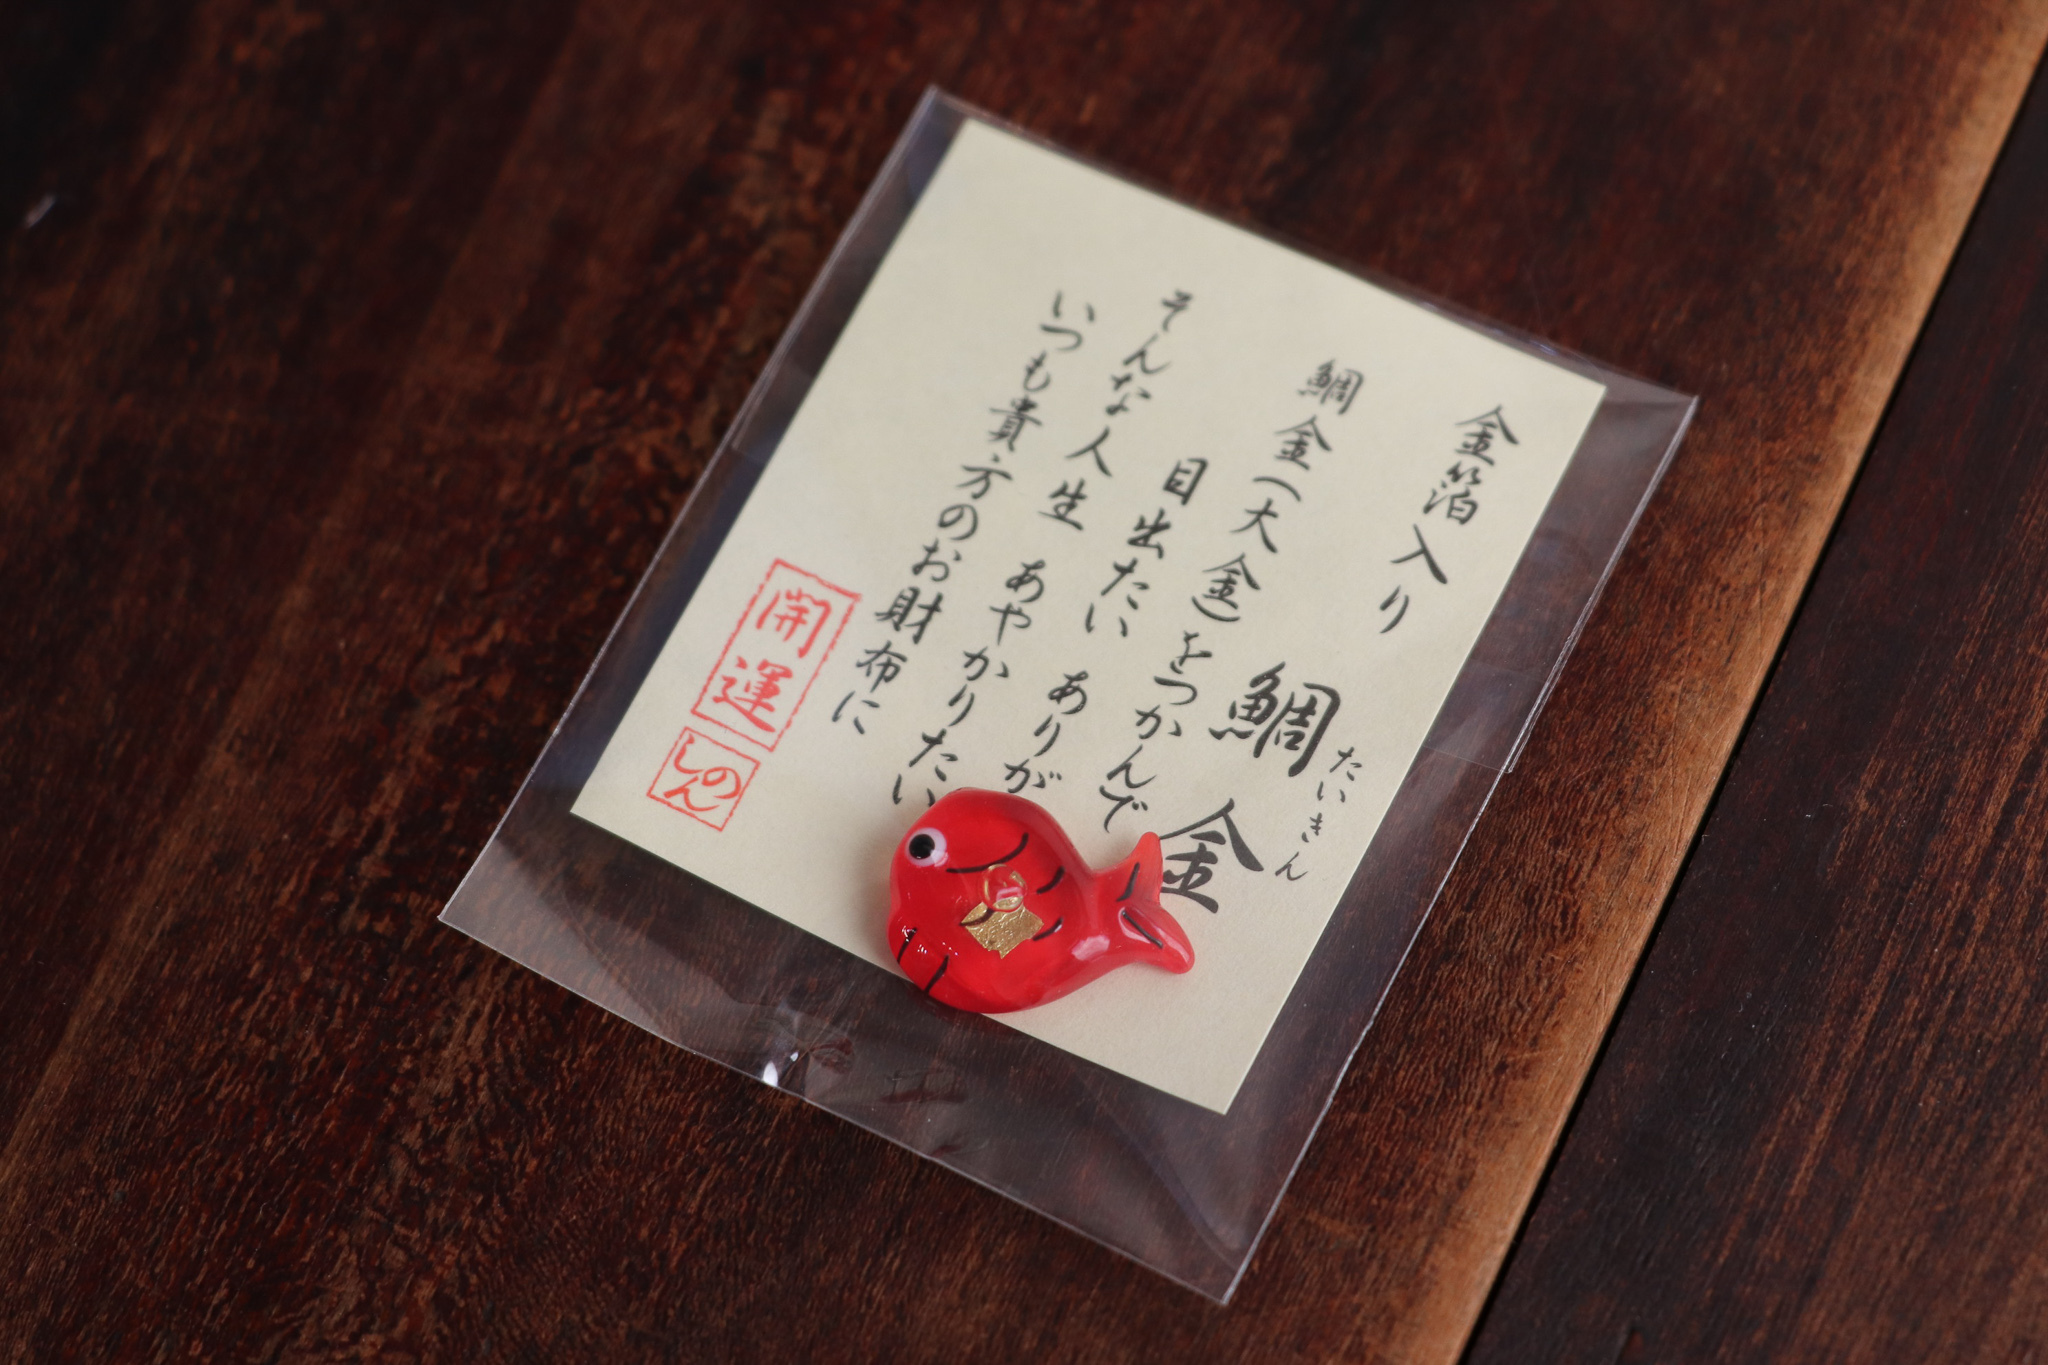 金箔入り
鯛金
たいきん
鯛金(大金)をつかんで
目出たい ありが
そんな人生 あやかりたい
いつも貴方のお財布に
開運
しのん